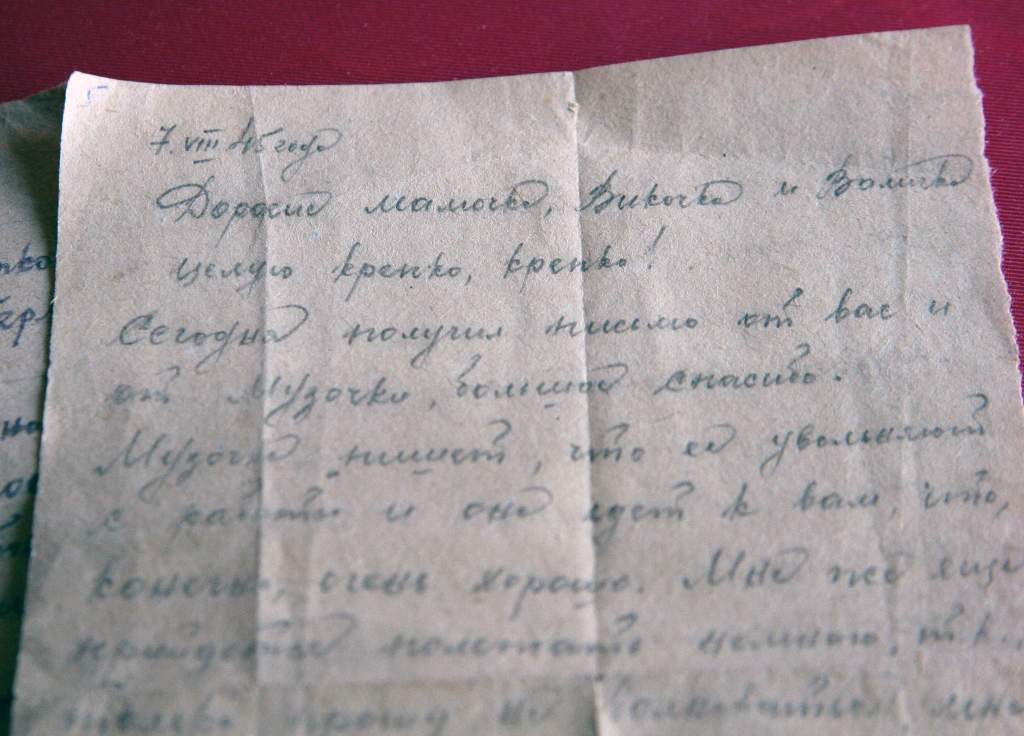 5
7.VIII 45 года
Дорогие мамочка, Викочка и Вол​ичка
целую крепко, крепко!
Сегодня получил письмо от вас и
от Музочки, большое спасибо.
Музочка пишет, что её увольняют
с работы и она едет к вам, что,
конечно, очень хорошо. Мне же еще
прийдется полетать немного, т.к.
только прошу не волноваться